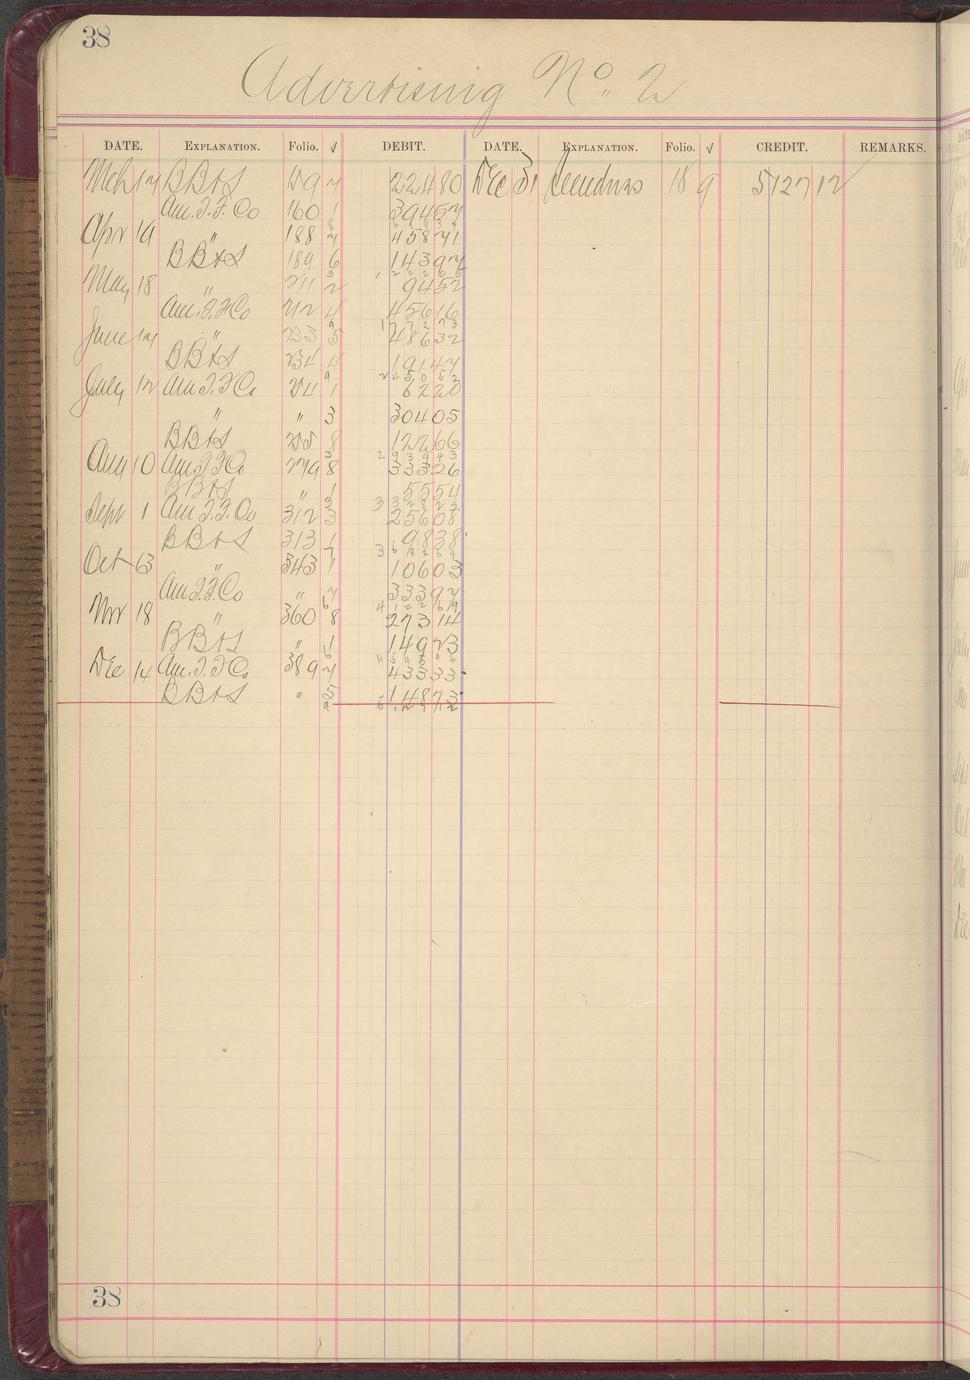 38
Advertising No. 2
DATE. EXPLANATION. Folio. √ DEBIT. DATE. EXPLANATION. Folio. √ CREDIT. REMARKS.
Mch 14 BB&S 224 80 Dec 31 18 9 5127 12
Am. T. F. Co 160 1 394 57
Apr 19 " 188 7 458 71
BB&S 189 6 143 97
May 18 " 211 2 94 52
Am. T. F. Co 212 4 456 16
June 14 " 233 5 486 32
BB&S 234 4 191 47
July 12 Am. T. F. Co 254 1 62 20
" " 3 304 05
BB&S 255 8 122 66
Aug 10 Am. T. F. Co 279 8 333 26
BB&S " 1 55 54
Sept 1 Am. T. F. Co 312 3 256 08
BB&S 313 1 98 38
Oct 13 " 343 1 106 03
Am. T. F. Co " 7 333 97
Nov 18 " 360 8 273 14
BB&S " 1 149 23
Dec 14 Am. T. F. Co 389 7 433 33
BB&S " 5 148 73
38